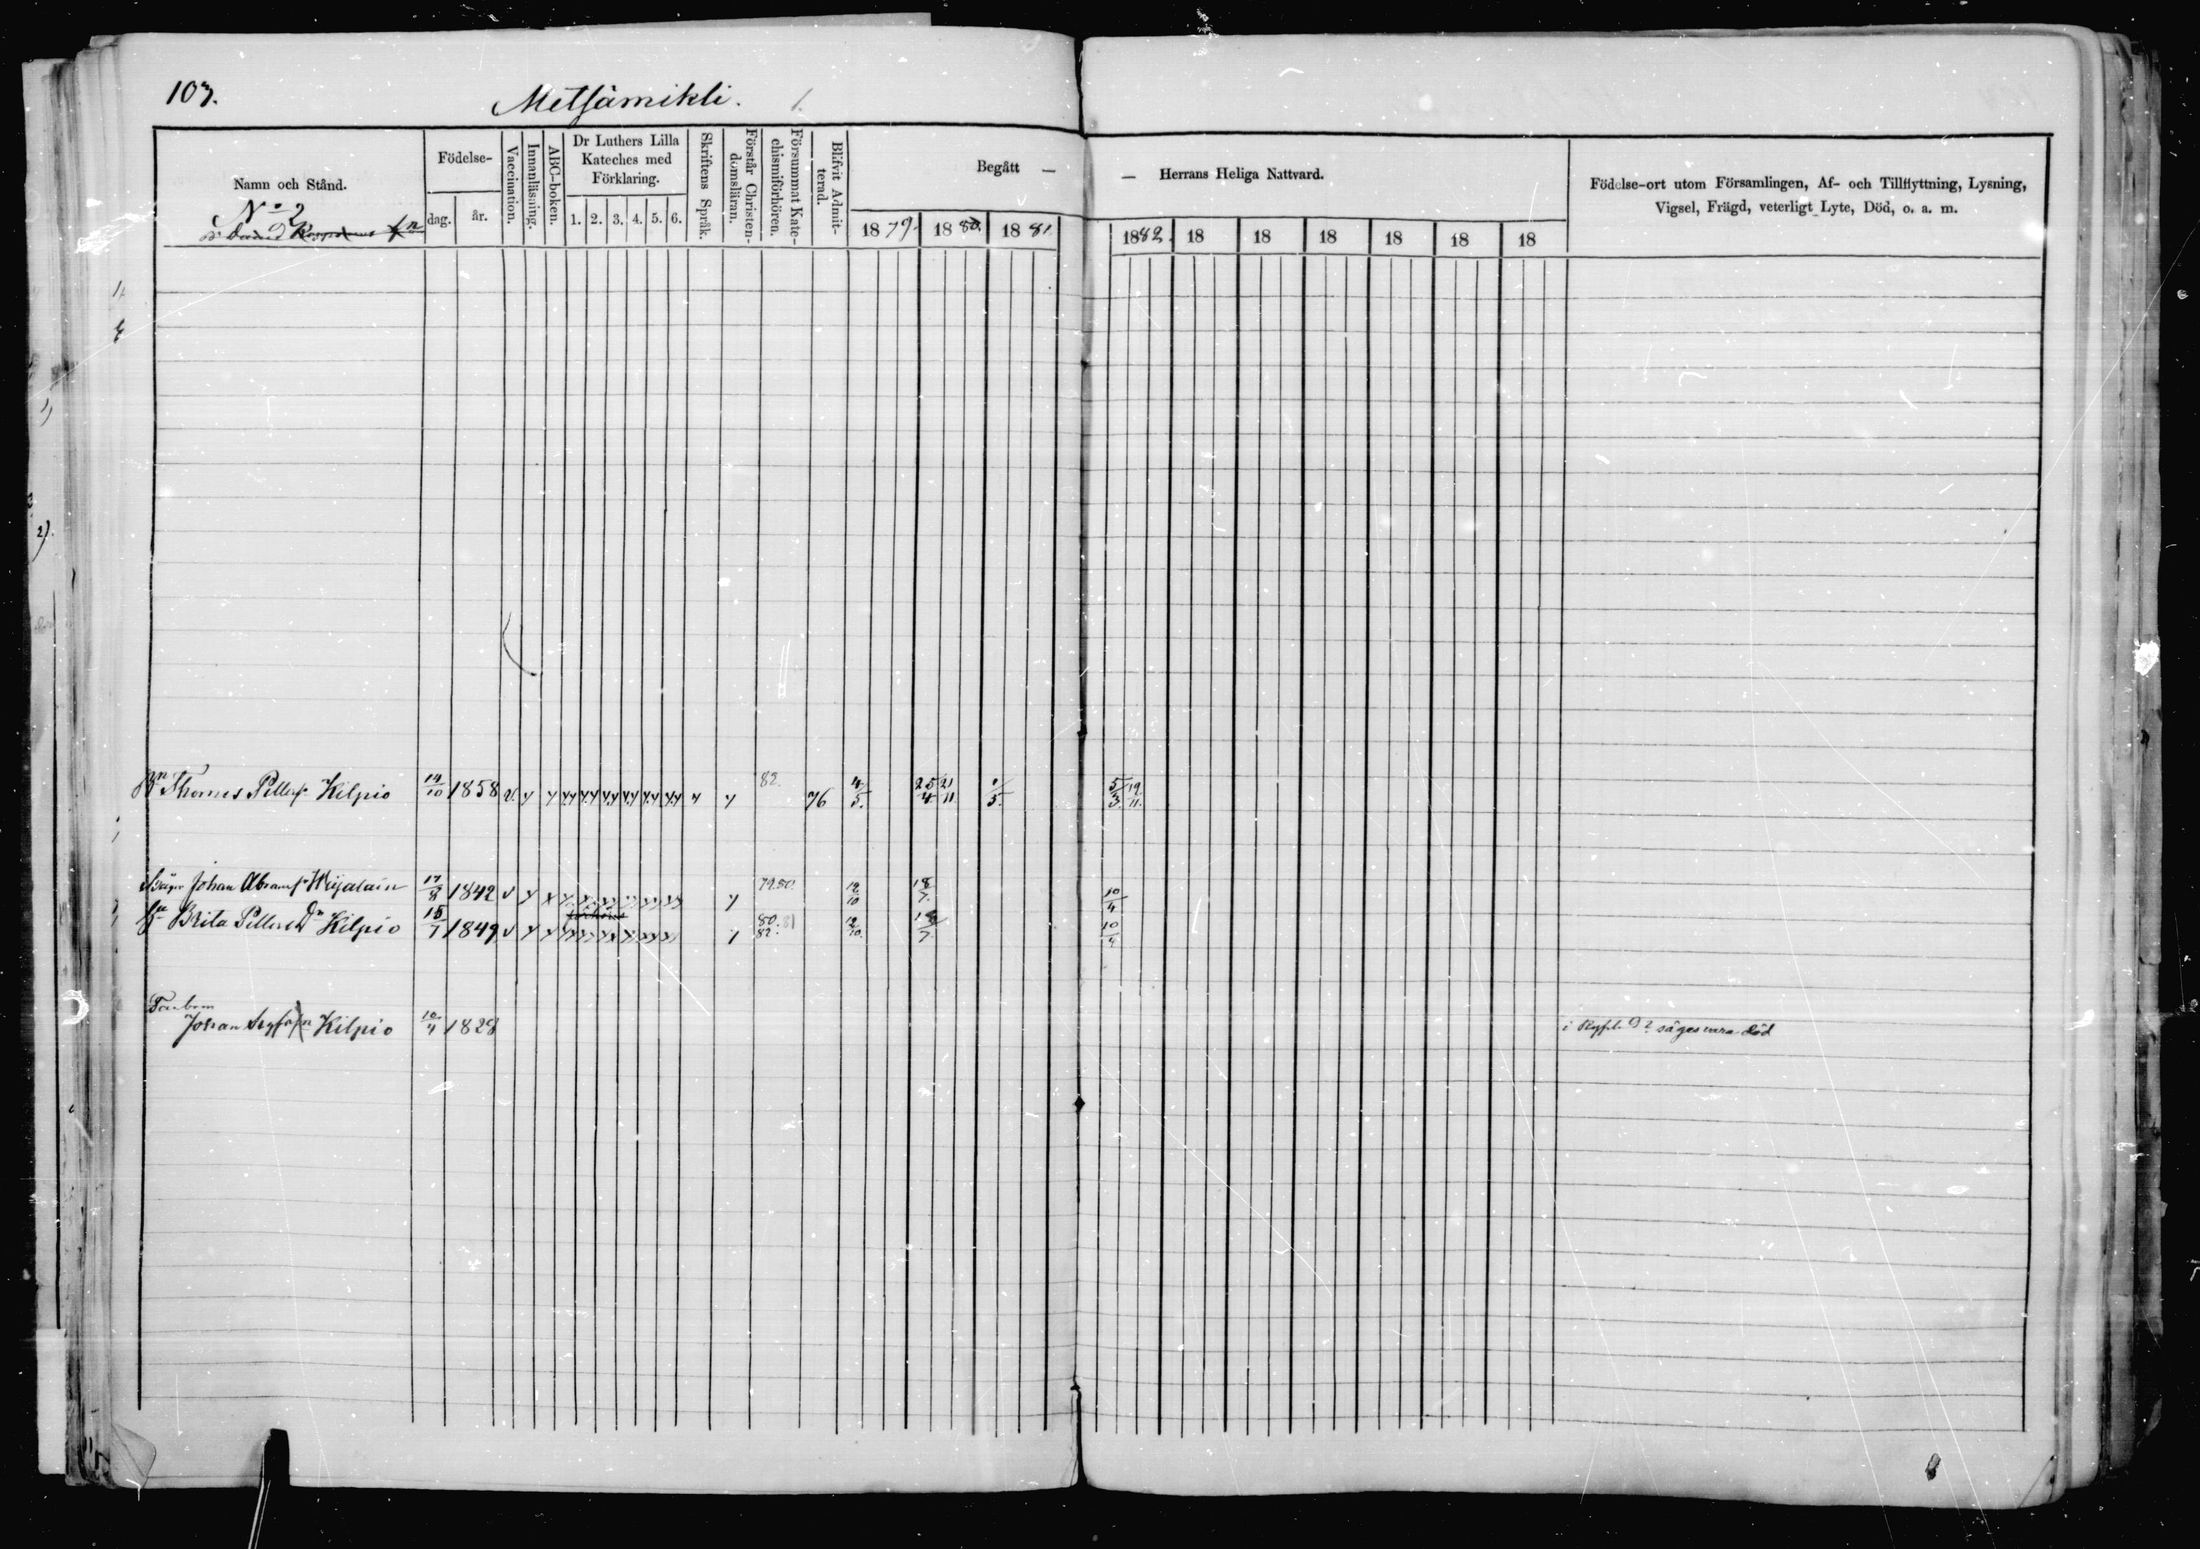 103.
Metsämikli. 1.
Namn och Stånd.
No 2
Födelse-
dag.
år.
Vaccination.
Innanläsning.
ABC-boken.
Dr Luthers Lilla
Kateches med
Förklaring.
1. 2. 3. 4. 5. 6.
Skriftens Språk.
Förstår Christen-
domsläran.
Försummat Kate-
chismiförhören.
Blifvit Admit-
terad.
Begått —
1879. 1880. 1881.
— Herrans Heliga Nattvard.
1882. 18 18 18 18 18 18
Födelse-ort utom Församlingen, Af- och Tillflyttning, Lysning,
Vigsel, Frägd, veterligt Lyte, Död, o. a. m.
82.
Thomas Petterss. Kilpio 14/10 1858 v. 76 4/5. 25/4 21/11 1/5. 5/3. 19/11.
Johan Abramss. 17/8 1842 v 79.80. 12/10 18/7. 10/4
Hu Brita Pettersdr Kilpio 15/7 1849 v 80.81 82. 12/10. 18/7. 10/4
Johan Kilpio 10/4 1828 säges vara död